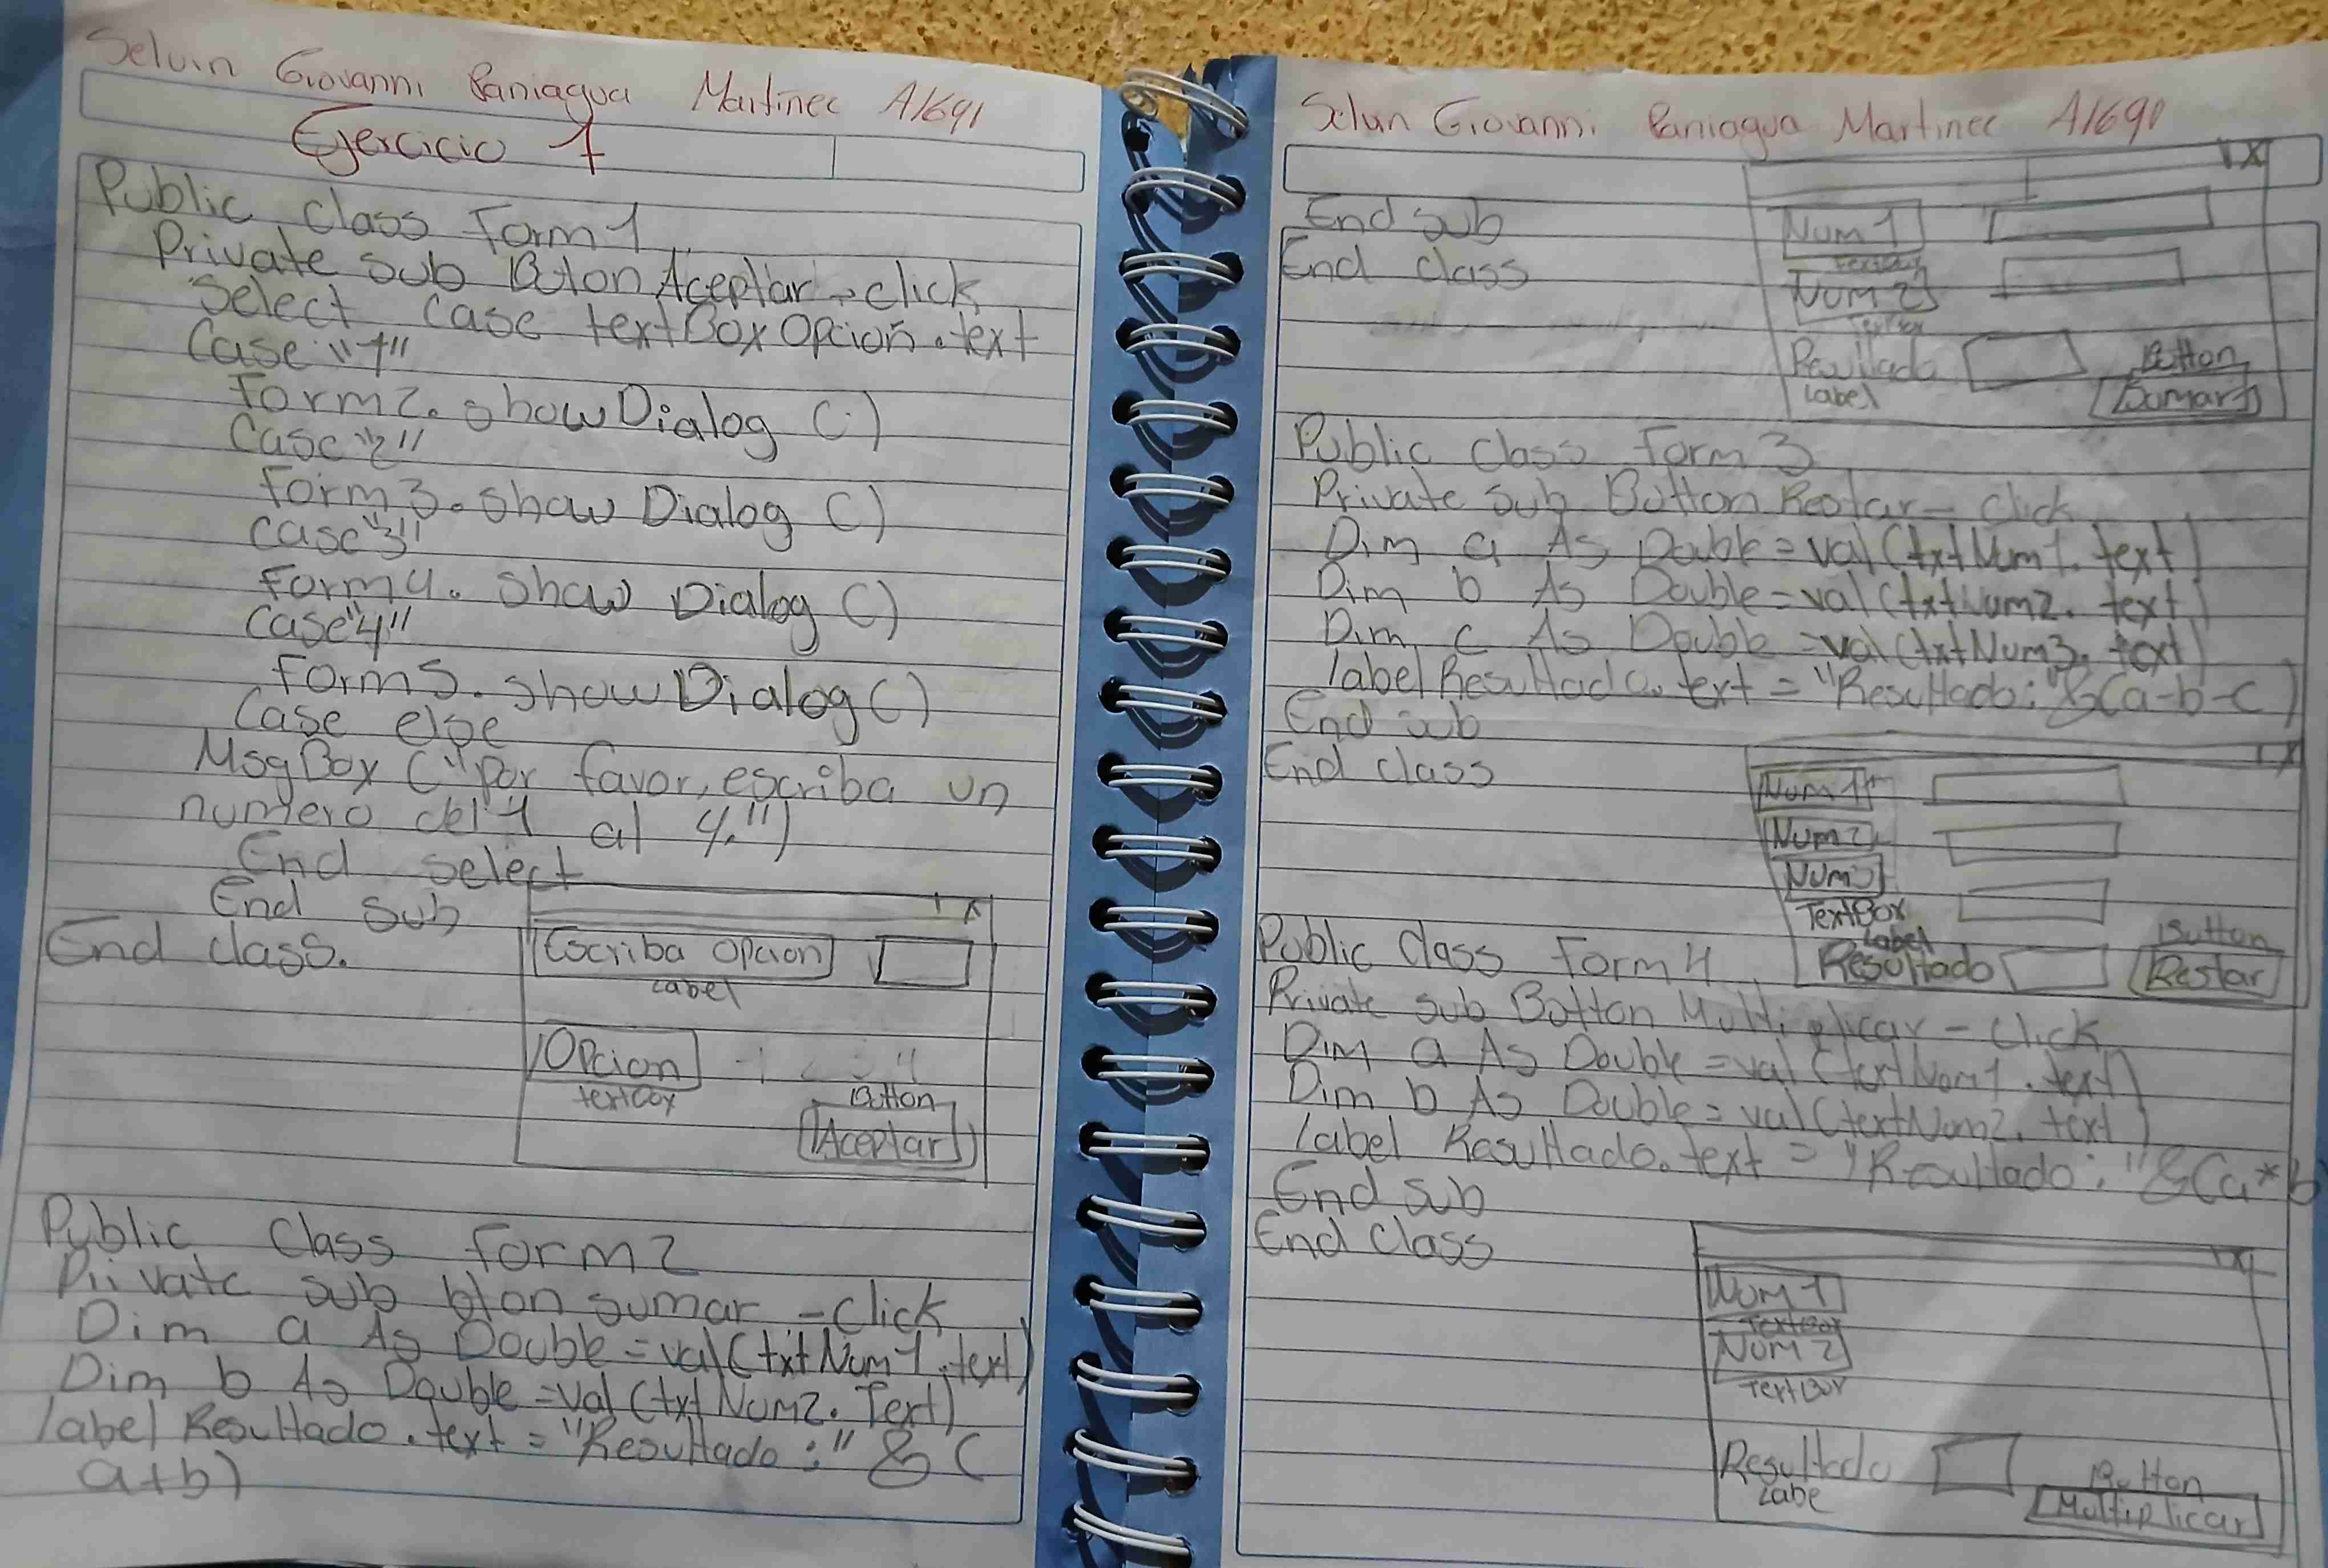 Selvin Giovanni Paniagua Martinec A1691
Ejercicio 1
Public class Form1
Private sub Boton Aceptar - click
Select case textBox Opcion.text
Case "1"
Form2.showDialog ()
Case "2"
Form3.show Dialog ()
Case "3"
Form4.show Dialog ()
Case "4"
Form5.showDialog ()
Case else
MsgBox ("Por favor, escriba un
numero del 1 al 4.")
End select
End sub
End class.
Escriba opcion
Label
Opcion 1 2 3 4
textBox
Button
Aceptar
Public Class form2
Private sub bton sumar - click
Dim a As Double = val (txtNum1.text)
Dim b As Double = val (txtNum2.Text)
label Resultado.text = "Resultado:" & (
a+b)
Selvin Giovanni Paniagua Martinec A1691
End sub
End class
Num1
TextBox
Num2
TextBox
Resultado
Label
Button
Sumar
Public Class Form 3
Private sub Button Restar - Click
Dim a As Double = val (txtNum1.text)
Dim b As Double = val (txtNum2.text)
Dim c As Double = val (txtNum3.text)
label Resultado.text = "Resultado:" & (a-b-c)
End sub
End class
Num1
Num2
Num3
TextBox
Label
Resultado
Button
Restar
Public Class Form 4
Private sub Button Multiplicar - click
Dim a As Double = val (textNum1.text)
Dim b As Double = val (textNum2.text)
label Resultado.text = "Resultado:" & (a*b
End sub
End Class
Num1
TextBox
Num2
TextBox
Resultado
Labe
Button
Multiplicar